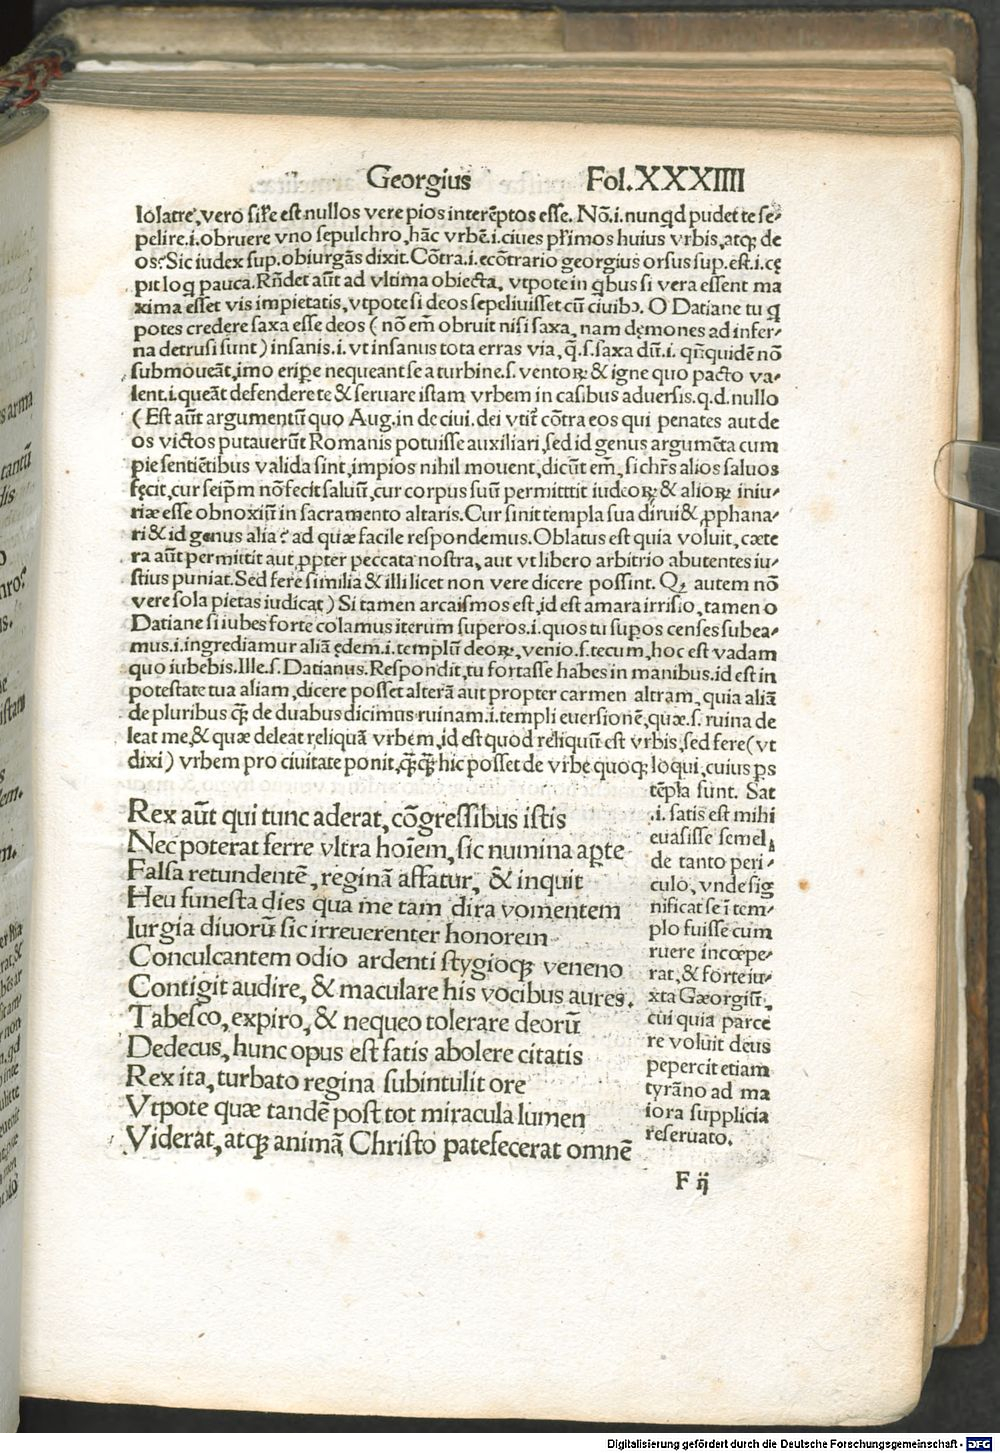 Georgius Fol.XXXIIII
lolatrę, vero siłe est nullos vere pios interēptos esse. Nō.i.nunqd pudet te se⸗
pelire.i.obruere vno sepulchro, hāc vrbē.i.ciues płimos huius vrbis, atqꝫ de
os? Sic iudex sup.obiurgās dixit. Cōtra.i.ecōtrario georgius orsus sup.est.i.cę
pit loq pauca. Rñdet aūt ad vltima obiecta, vtpote in qbus si vera essent ma
xima esset vis impietatis, vtpote si deos sepeliuisset cū ciuibꝰ. O Datiane tu q
potes credere saxa esse deos ( nō em̄ obruit nisi saxa, nam dęmones ad infer⸗
na detrusi sunt ) insanis.i. vt insanus tota erras via, q̄.s.saxa dū.i. qñquidē nō
submoueāt, imo eriꝑe nequeant se a turbine.s. ventoꝝ & igne quo pacto va⸗
lent.i.queāt defendere te & seruare istam vrbem in casibus aduersis.q.d.nullo
( Est aūt argumentū quo Aug.in de ciui.dei vtiť cōtra eos qui penates aut de
os victos putauerūt Romanis potuisse auxiliari, sed id genus argumēta cum
pie sentiētibus valida sint, impios nihil mouent, dicūt em̄, si chrs̄ alios saluos
fęcit, cur seipm̄ nō fecit saluū, cur corpus suū permitttit iudeoꝝ & alioꝝ iniu⸗
riæ esse obnoxiū in sacramento altaris. Cur sinit templa sua dirui & ꝓphana⸗
ri & id genus alia? ad quæ facile respondemus. Oblatus est quia voluit, cæte
ra aūt permittit aut ꝓpter peccata nostra, aut vt libero arbitrio abutentes iu⸗
stius puniat. Sed fere similia & illi licet non vere dicere possint. Qꝫ autem nō
vere sola pietas iudicat ) Si tamen arcaismos est, id est amara irrisio, tamen o
Datiane si iubes forte colamus iterum superos.i. quos tu suꝑos censes subea⸗
mus.i.ingrediamur aliā ędem.i.templū deoꝝ, venio.s.tecum, hoc est vadam
quo iubebis. Ille.s. Datianus. Respondit, tu fortasse habes in manibus.id est in
potestate tua aliam, dicere posset alterā aut propter carmen altram, quia aliā
de pluribus q̄ꝫ de duabus dicimus ruinam.i.templi euersionē, quæ.s. ruina de
leat me, & quæ deleat reliquā vrbem, id est quod reliquū est vrbis, sed fere ( vt
dixi ) vrbem pro ciuitate ponit, q̄ꝫq̄ꝫ hic posset de vrbe quoqꝫ loqui, cuius ps
tēpla sunt. Sat
.i. satis est mihi
euasisse semel,
de tanto peri⸗
culo, vnde sig
nificat se ī tem⸗
plo fuisse cum
ruere incœpe⸗
rat, & forte iu⸗
xta Gæorgiū,
cui quia parce
re voluit deus
pepercit etiam
tyrāno ad ma
iora supplicia
reseruato.
Rex aūt qui tunc aderat, cōgressibus istis
Nec poterat ferre vltra hoīem, sic numina aꝑte
Falsa retundentē, reginā affatur, & inquit
Heu funesta dies qua me tam dira vomentem
Iurgia diuorū sic irreuerenter honorem
Conculcantem odio ardenti stygioqꝫ veneno
Contigit audire, & maculare his vocibus aures.
Tabesco, expiro, & nequeo tolerare deorū
Dedecus, hunc opus est fatis abolere citatis
Rex ita, turbato regina subintulit ore
Vtpote quæ tandē post tot miracula lumen
Viderat, atqꝫ animā Christo patefecerat omnē
F ij
Digitalisierung gefördert durch die Deutsche Forschungsgemeinschaft - DFG